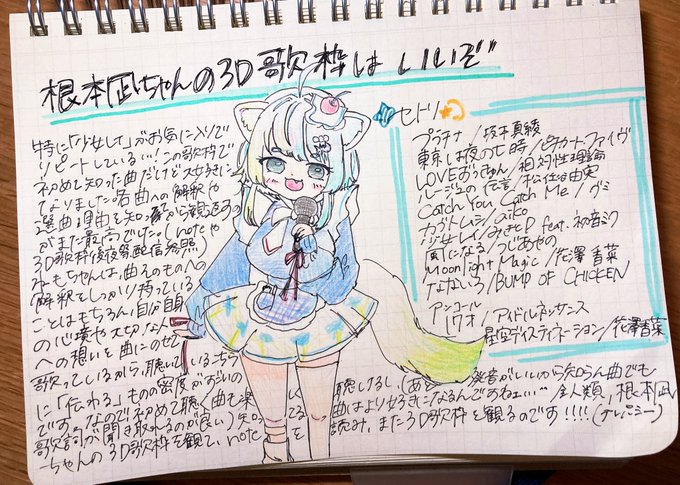 根本凪ちゃんの3D歌枠はいいぞ
特に「少女レイ」がお気に入りで
リピートしている…!この歌枠で
初めて知った曲だけど大好きに
なりました。名曲への解釈や
選曲理由を知ってから観返すの
がまた最高でした。(noteや
3D歌枠後夜祭配信参照)
ねもちゃんは、曲そのものへの
解釈をしっかり持っている
ことはもちろん、自分自身
の心境や大切な人
への想いを曲にのせて
歌っているから、聴いているこっち
に「伝わる」ものの密度がすごいの
です。なので初めて聴く曲も楽しく聴けるし、(あと、発音がいいから
歌詞が聞き取れるのが良い)知ってる曲はより好きになるんですねェ…全人類、根本凪
ちゃんの3D歌枠を観て、noteを読み、また3D歌枠を観るのです!!!!
セトリ
プラチナ/坂本真綾
東京は夜の七時/ピチカート・ファイヴ
LOVEずっきゅん/相対性理論
ルージュの伝言/松任谷由実
Catch You Catch Me/グミ
カブトムシ/aiko
少女レイ/みきとP feat.初音ミク
風になる/つじあやの
Moonlight Magic/花澤香菜
なないろ/BUMP OF CHICKEN
アンコール
17才/アイドルネッサンス
星空☆ディスティネーション/花澤香菜